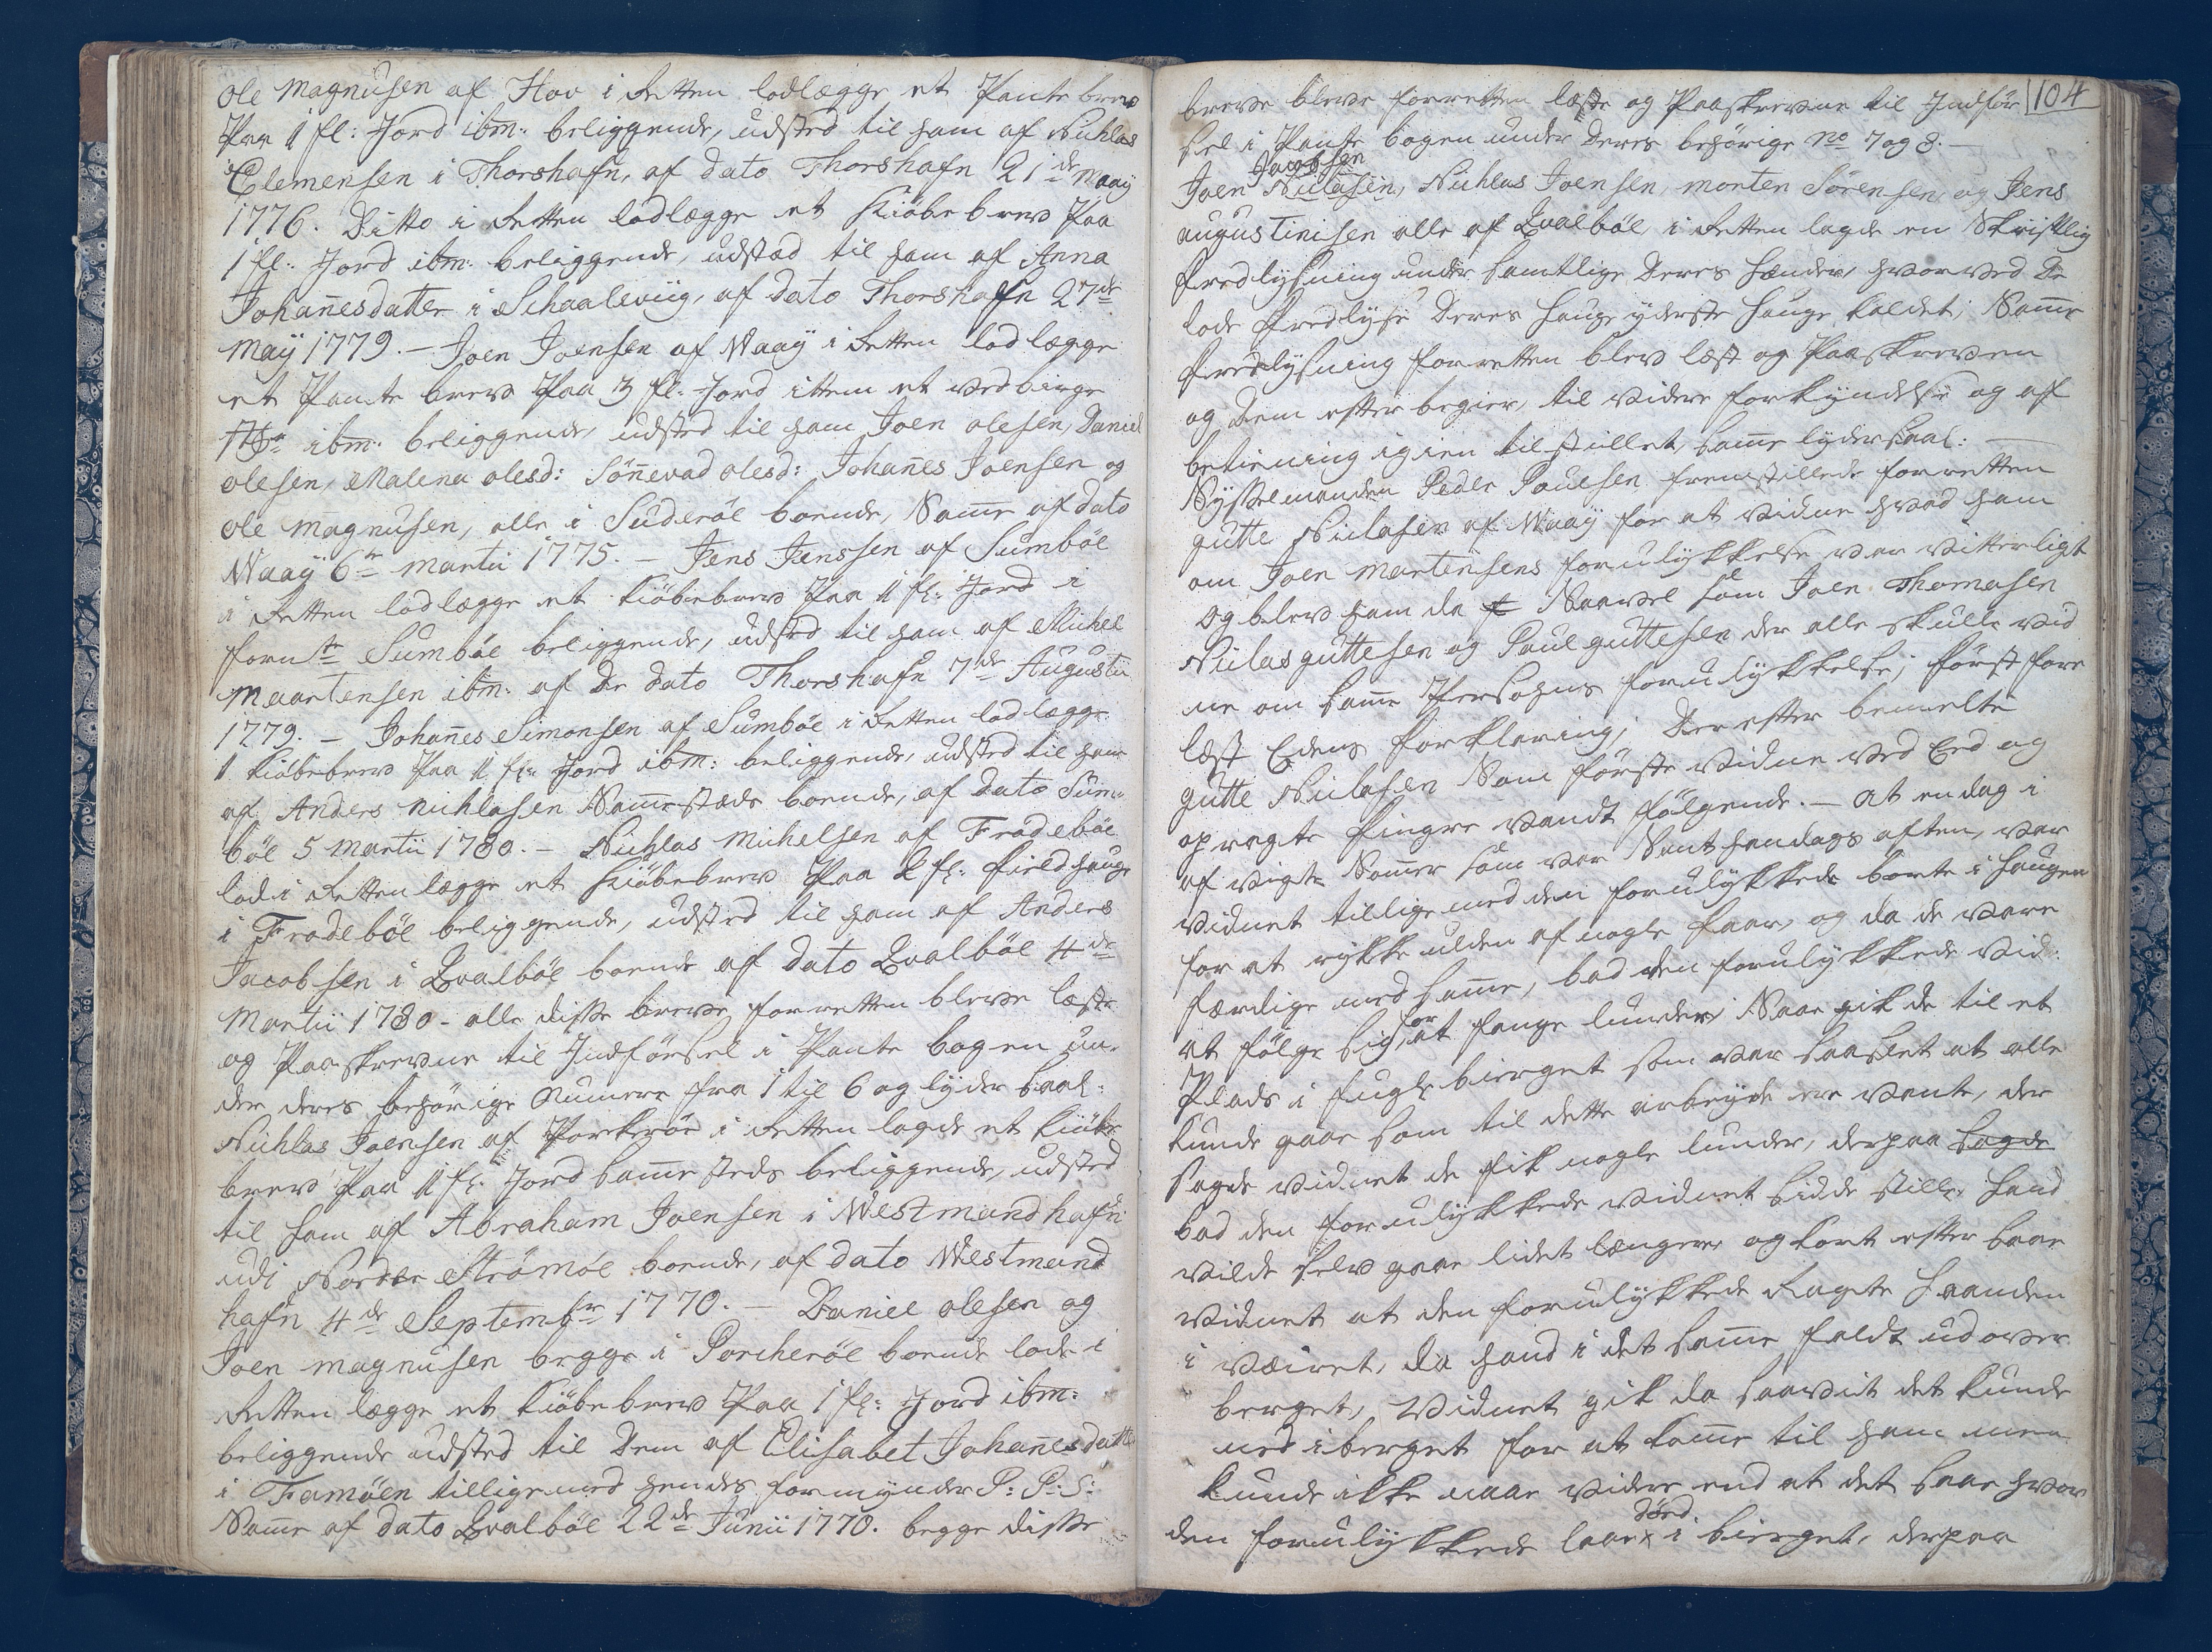 Ole Magnusen af Hov i Retten lodlægge et Pante brev
Paa 1 fl: Jord ibm: beliggende, udsted til ham af Nichlas
Clemensen i Thorshafn, af dato Thorshafn 21de Maaÿ
1776. Ditto i Retten lodlægge et Kiöbe brev Paa
1 fl: Jord ibm: beliggende, udsted til ham af Anna
Johanesdatter i Schaalevüg, af dato Thorshafn 27de
Maÿ 1779. – Joen Joensen af Waaÿ i Retten lod lægge
et Pante brev Paa 3 fl: Jord ittem et
ibm: beliggende, udsted til ham Joen olesen, Daniel
olesen, Malena olesd: Sönevad olesd: Johanes Joensen og
Ole Magnusen, alle i Suderöe boende, Same af dato
Waaÿ 6te Martii 1775. – Jens Jenssen af Sumböe
i Retten lodlægge et Kiöbebrev Paa 1 fl: Jord i
fornte Sumböe beliggende, udsted til ham af Michel
Maartensen ibm: af De dato Thorshafn 7de Augustii
1779. – Johanes Simonsen af Sumböe i Retten lod lægge
1 Kiöbebrev Paa 1 fl: Jord ibm: beliggende, udsted til ham
af Anders Nichlasen Samestæds boende, af dato Sum-
böe 5 Martii 1780. – Nichlas Michelsen af Frodeböe
lod i Retten lægge et Kiöbebrev Paa 2 fl: field hauge
i Frodeböe beliggende, udsted til ham af Anders
Jacobsen i Qvalböe boende af dato Qvalböe 4de
Martii 1780 – alle disse breve forretten bleve læste
og Paaskrevne til Indförsel i Pante bogen un-
der deres behörige Numere fra 1 til 6 og lyder saal:
Nichlas Joensen af Porkeröe i Retten lagde et Kiöbe
brev Paa 1 fl: Jord samesteds beliggende, udsted
til ham af Abraham Joensen i Westmandhafn
udi Norder Strömöe boende, af dato Westmand
hafn 4de Septembr 1770. – Daniel olesen og
Joen Magnusen begge i Porcheröe boende lode i
Retten lægge et Kiöbebrev Paa 1 fl: Jord ibm:
beliggende udsted til Dem af Elisabet Johanesdatt
i Famöen tilligemed hendes formynder P: P: S:
Same af dato Qvalböe 22de Junii 1770. begge disse
104
breve bleve forretten læste og Paaskrevne til Indför
sel i Pante bogen under Deres behörige No 7 og 8. –
Jacobsen
Joen Niclasen, Nichlas Joensen, Morten Sörensen, og Jens
augustinisen alle af Qvalböe, i Retten lagde en Skriftlig
fredlysning under samtlige Deres hænder, hvorved De
lode fredlyse Deres hauge yderste hauge kaldet; Same
fredlysning forretten blev læst og Paaskreven
og Dem efter begier, til videre forkyndelse og af
betiening igien tilstillet, same lyder saal: –
Sysselmanden Peder Poulsen fremstillede forretten
gutte Niclasen af Waaÿ for at vidne hvad ham
om Joen Martensens forulykkelse var vitterligt
og blev ham da Saavel som Joen Thomasen
Niclas guttesen og Poul guttesen der alle skulle vid
ne om same Persohns forulykkelse; först fore
læst Edens forklaring; Derefter bemelte
gutte Niclasen Som förste vidne ved Eed og
opragte fingre vandt fölgende. – At en dag i
af vigte Somer som var Sant handags aften, var
vidnet tilligemed den forulykkede borte i haugen
for at rykke ulden af nogle faar, og da de vare
færdige med same, bad den forulykkede vid:
at fölge sig for at fange lunder; Saa gik de til et
Plads i fugle bierget som var saa slet at alle
kunde gaae som til dette arbeyde ere vante, der
sagde vidnet de fik nogle lunder, derpaa sagde
bad den forulykkede vidnet sidde stille, hand
vilde selv gaae lidet længere, og kort efter saae
vidnet at den forulykkede Ragte haanden
i væiret, da hand i det same faldt ud over
berget, Vidnet gik da saavit det kunde
ned i berget for at kome til ham men
kunde ikke naae videre end at det saae hvor
död
den forulykkede laae x i bierget, derpaa